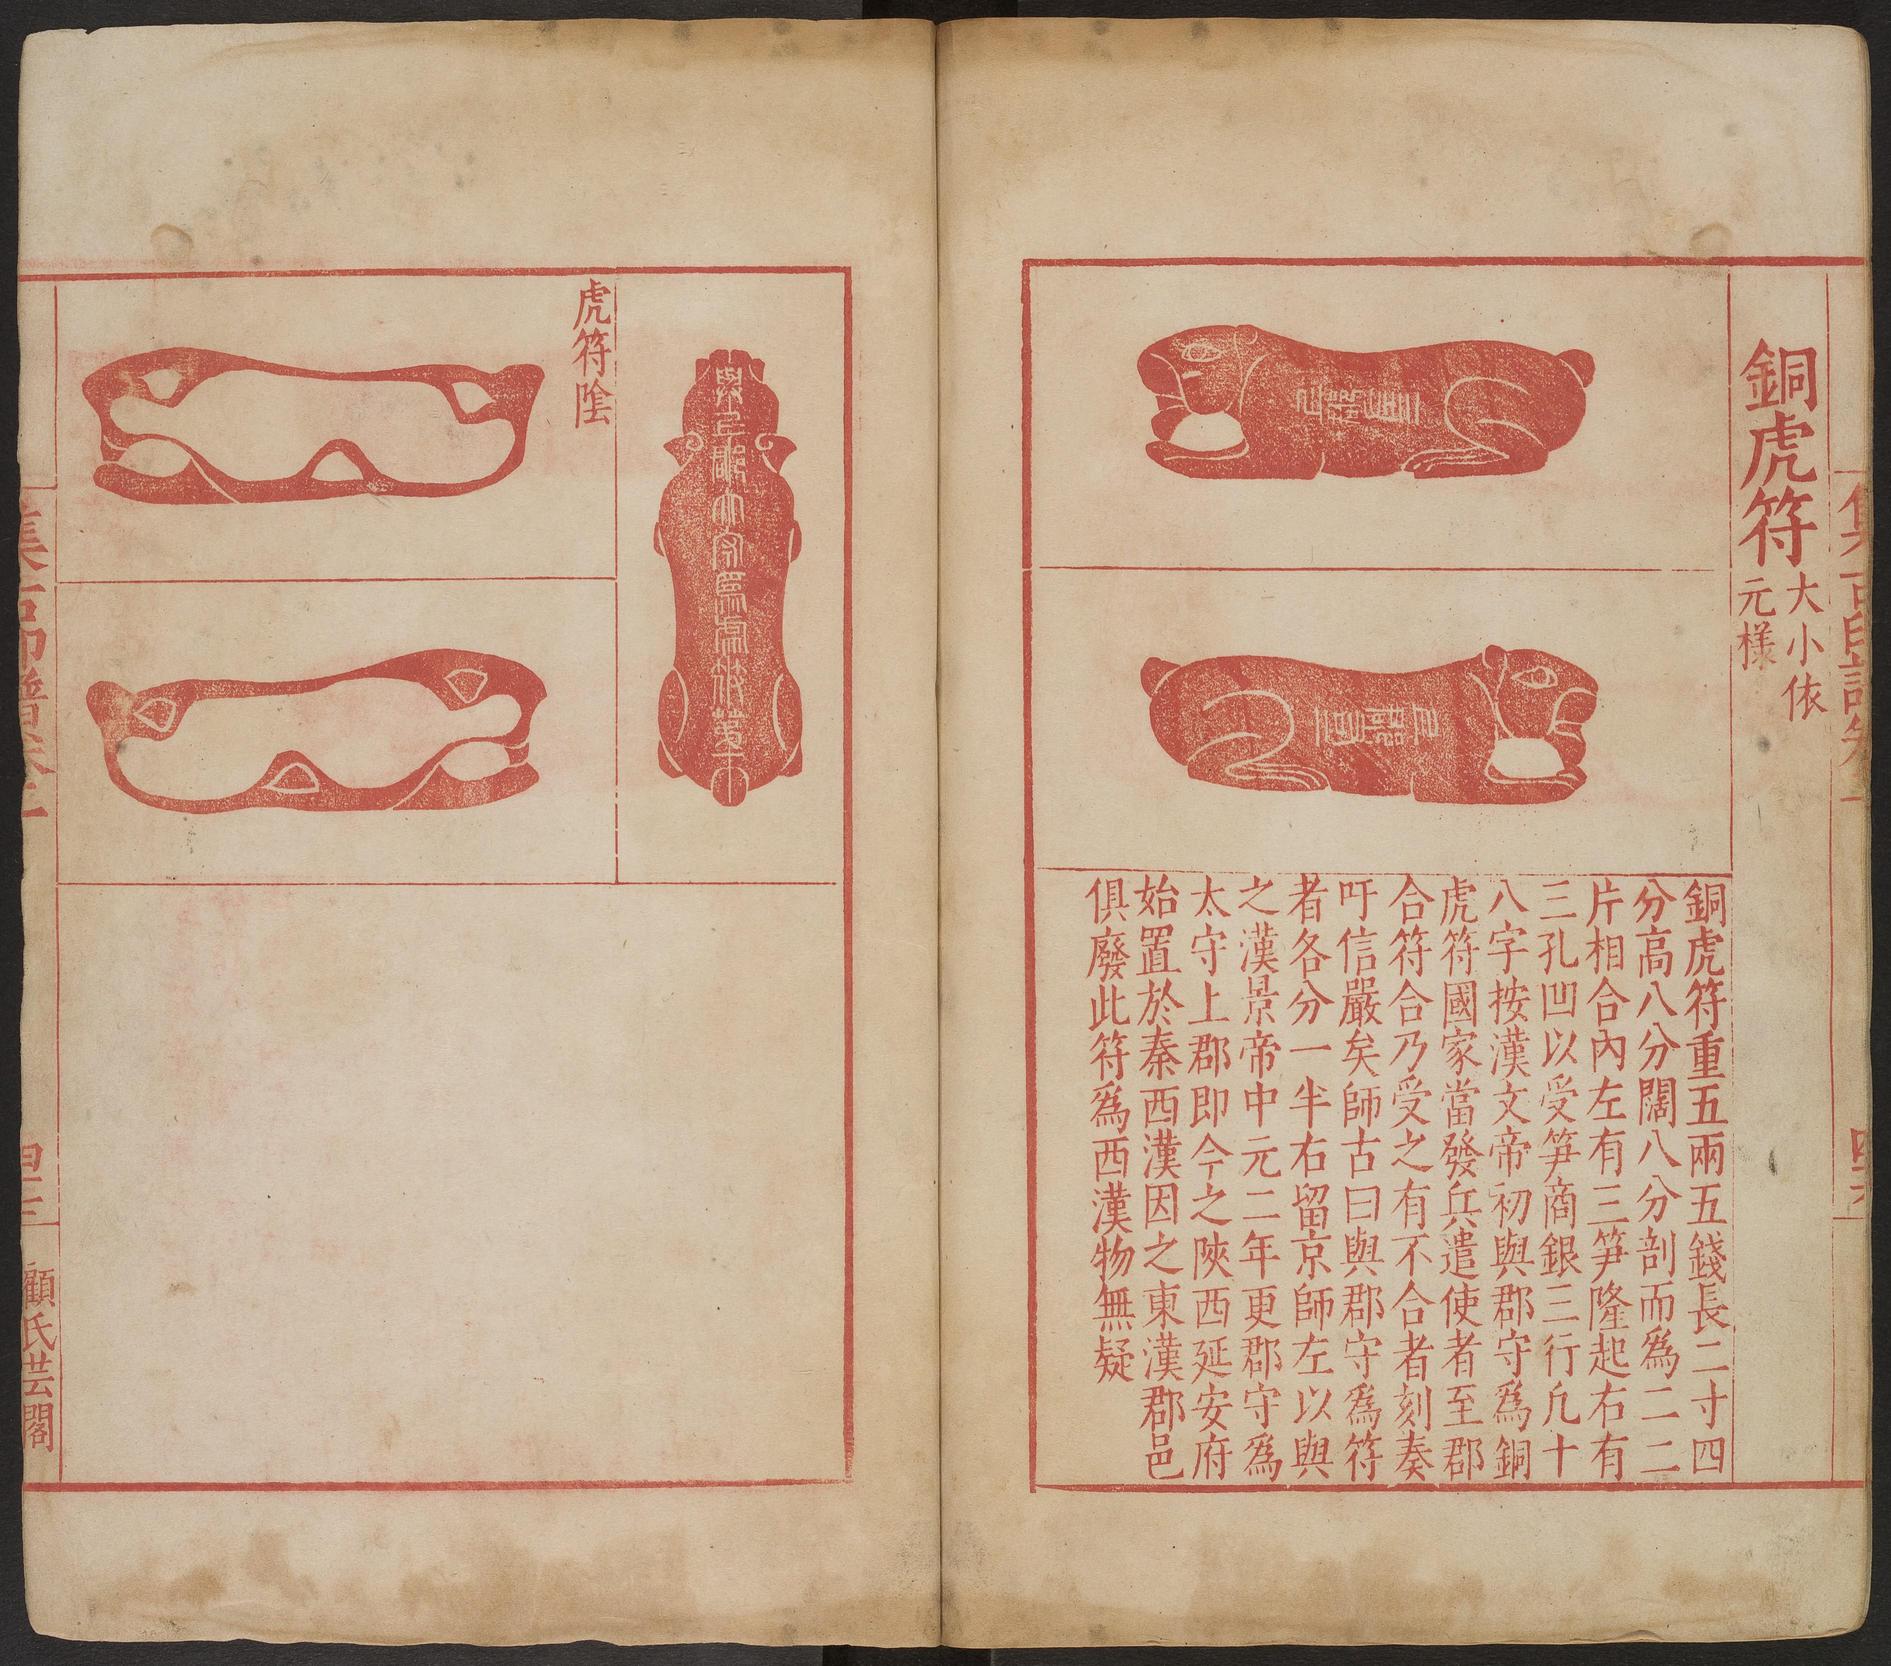 銅虎符
大小依
元樣
銅虎符重五兩五錢長二寸四
分高八分闊八分剖而爲二二
片相合內左有三笋隆起右有
三孔凹以受笋商銀三行凢十
八字按漢文帝初與郡守爲銅
虎符國家當發兵遣使者至郡
合符合乃受之有不合者刻奏
吁信嚴矣師古曰與郡守爲符
者各分一半右留京師左以與
之漢景帝中元二年更郡守爲
太守上郡即今之陝西延安府
始置於秦西漢因之東漢郡邑
俱廢此符爲西漢物無疑
虎符陰
集古印譜
顧氏芸閣